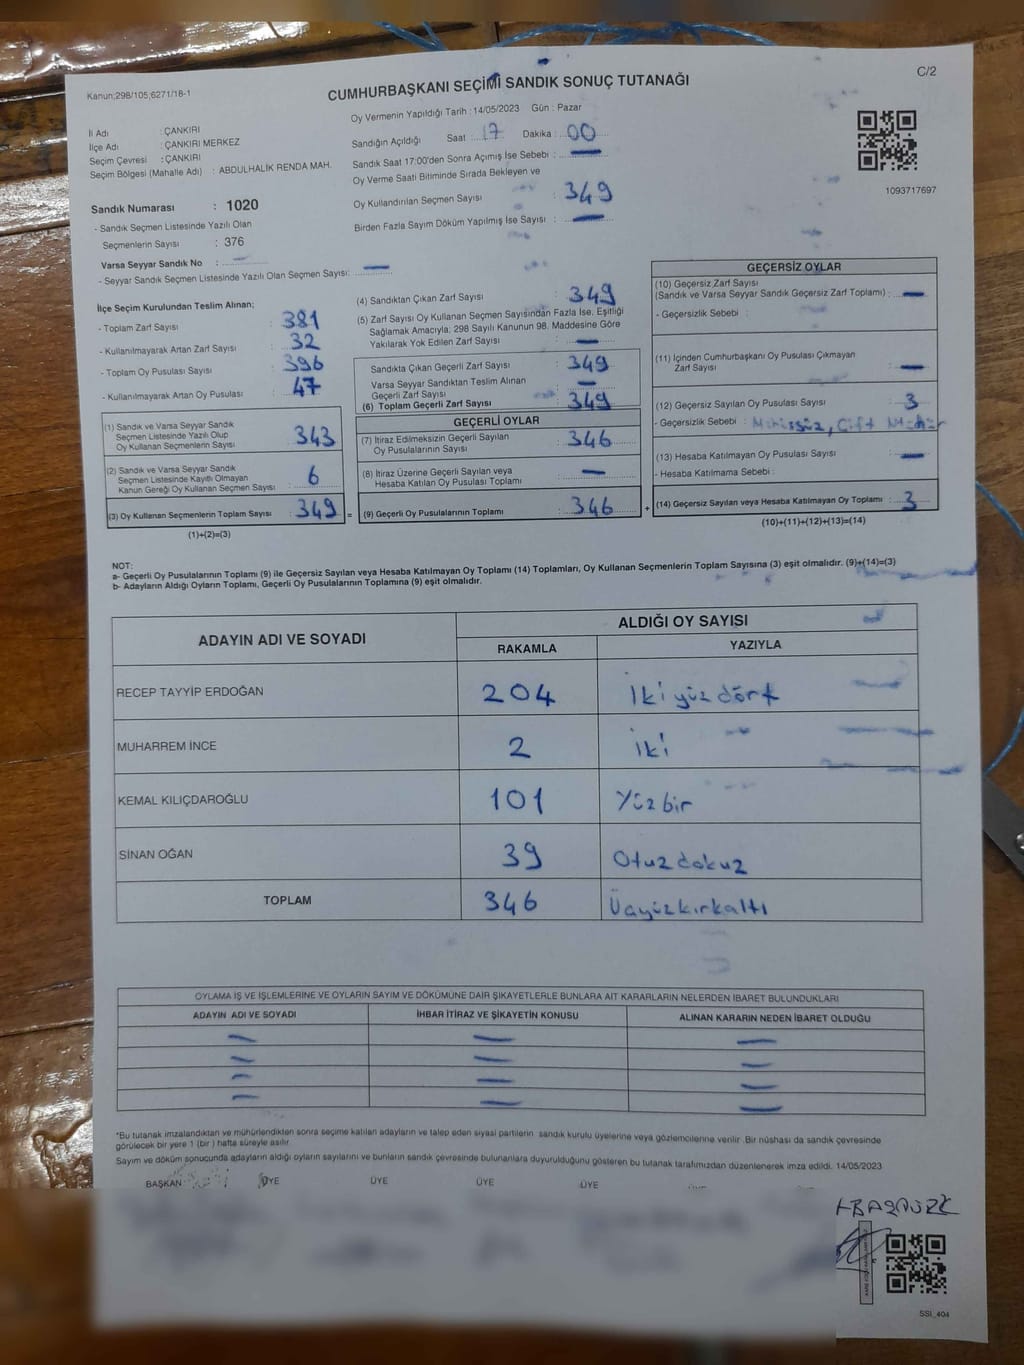 C/2
Kanun;298/105;6271/18-1
CUMHURBAŞKANI SEÇİMİ SANDIK SONUÇ TUTANAĞI
Oy Vermenin Yapıldığı Tarih : 14/05/2023 Gün : Pazar
İl Adı : ÇANKIRI
İlçe Adı : ÇANKIRI MERKEZ
Seçim Çevresi : ÇANKIRI
Seçim Bölgesi (Mahalle Adı) : ABDULHALİK RENDA MAH.
Sandık Numarası : 1020
- Sandık Seçmen Listesinde Yazılı Olan
Seçmenlerin Sayısı : 376
Varsa Seyyar Sandık No : –
- Seyyar Sandık Seçmen Listesinde Yazılı Olan Seçmen Sayısı: –
Sandığın Açıldığı Saat : 17 Dakika : 00
Sandık Saat 17:00'den Sonra Açımış İse Sebebi : –
Oy Verme Saati Bitiminde Sırada Bekleyen ve
Oy Kullandırılan Seçmen Sayısı : 349
Birden Fazla Sayım Döküm Yapılmış İse Sayısı : –
1093717697
İlçe Seçim Kurulundan Teslim Alınan:
- Toplam Zarf Sayısı : 381
- Kullanılmayarak Artan Zarf Sayısı : 32
- Toplam Oy Pusulası Sayısı : 396
- Kullanılmayarak Artan Oy Pusulası : 47
(1) Sandık ve Varsa Seyyar Sandık
Seçmen Listesinde Yazılı Olup
Oy Kullanan Seçmenlerin Sayısı : 343
(2) Sandık ve Varsa Seyyar Sandık
Seçmen Listesinde Kayıtlı Olmayan
Kanun Gereği Oy Kullanan Seçmen Sayısı : 6
(3) Oy Kullanan Seçmenlerin Toplam Sayısı : 349 =
(1)+(2)=(3)
(4) Sandıktan Çıkan Zarf Sayısı : 349
(5) Zarf Sayısı Oy Kullanan Seçmen Sayısından Fazla İse, Eşitliği
Sağlamak Amacıyla; 298 Sayılı Kanunun 98. Maddesine Göre
Yakılarak Yok Edilen Zarf Sayısı : –
Sandıkta Çıkan Geçerli Zarf Sayısı : 349
Varsa Seyyar Sandıktan Teslim Alınan
Geçerli Zarf Sayısı : –
(6) Toplam Geçerli Zarf Sayısı : 349
GEÇERLİ OYLAR
(7) İtiraz Edilmeksizin Geçerli Sayılan
Oy Pusulalarının Sayısı : 346
(8) İtiraz Üzerine Geçerli Sayılan veya
Hesaba Katılan Oy Pusulası Toplamı : –
(9) Geçerli Oy Pusulalarının Toplamı : 346 +
GEÇERSİZ OYLAR
(10) Geçersiz Zarf Sayısı
(Sandık ve Varsa Seyyar Sandık Geçersiz Zarf Toplamı) : –
- Geçersizlik Sebebi :
(11) İçinden Cumhurbaşkanı Oy Pusulası Çıkmayan
Zarf Sayısı : –
(12) Geçersiz Sayılan Oy Pusulası Sayısı : 3
- Geçersizlik Sebebi : Mühürsüz, Çift Mühür
(13) Hesaba Katılmayan Oy Pusulası Sayısı : –
- Hesaba Katılmama Sebebi :
(14) Geçersiz Sayılan veya Hesaba Katılmayan Oy Toplamı : 3
(10)+(11)+(12)+(13)=(14)
NOT:
a- Geçerli Oy Pusulalarının Toplamı (9) ile Geçersiz Sayılan veya Hesaba Katılmayan Oy Toplamı (14) Toplamları, Oy Kullanan Seçmenlerin Toplam Sayısına (3) eşit olmalıdır. (9)+(14)=(3)
b- Adayların Aldığı Oyların Toplamı, Geçerli Oy Pusulalarının Toplamına (9) eşit olmalıdır.
ADAYIN ADI VE SOYADI ALDIĞI OY SAYISI
RAKAMLA YAZIYLA
RECEP TAYYİP ERDOĞAN 204 İki yüz dört
MUHARREM İNCE 2 iki
KEMAL KILIÇDAROĞLU 101 Yüz bir
SİNAN OĞAN 39 Otuz dokuz
TOPLAM 346 Üçyüzkırkaltı
OYLAMA İŞ VE İŞLEMLERİNE VE OYLARIN SAYIM VE DÖKÜMÜNE DAİR ŞİKAYETLERLE BUNLARA AİT KARARLARIN NELERDEN İBARET BULUNDUKLARI
ADAYIN ADI VE SOYADI İHBAR İTİRAZ VE ŞİKAYETİN KONUSU ALINAN KARARIN NEDEN İBARET OLDUĞU
– – –
– – –
– – –
– – –
*Bu tutanak imzalandıktan ve mühürlendikten sonra seçime katılan adayların ve talep eden siyasi partilerin sandık kurulu üyelerine veya gözlemcilerine verilir. Bir nüshası da sandık çevresinde
görülecek bir yere 1 (bir) hafta süreyle asılır.
Sayım ve döküm sonucunda adayların aldığı oyların sayılarını ve bunların sandık çevresinde bulunanlara duyurulduğunu gösteren bu tutanak tarafımızdan düzenlenerek imza edildi. 14/05/2023
BAŞKAN ÜYE ÜYE ÜYE ÜYE
SSI_404